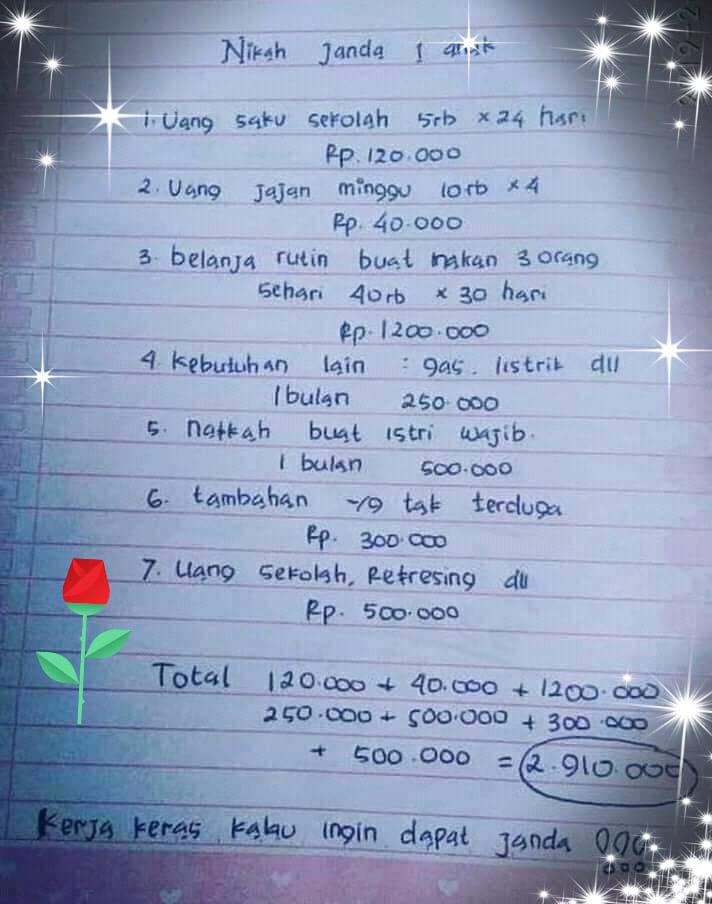 Nikah Janda 1 anak
1. Uang saku sekolah 5rb x 24 hari
Rp. 120.000
2. Uang Jajan minggu 10rb x 4
Rp. 40.000
3. belanja rutin buat makan 3 orang
Sehari 40rb x 30 hari
Rp. 1200.000
4. Kebutuhan lain : gas. listrik dll
1 bulan 250.000
5. nafkah buat istri wajib.
1 bulan 500.000
6. tambahan yg tak terduga
Rp. 300.000
7. Uang sekolah, Refresing dll
Rp. 500.000
Total 120.000 + 40.000 + 1200.000
250.000 + 500.000 + 300.000
+ 500.000 = 2.910.000
Kerja keras kalau ingin dapat Janda !!!